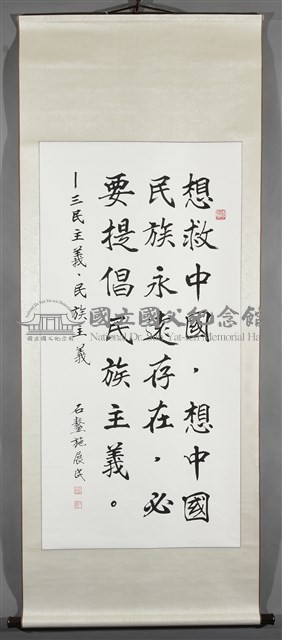 想救中國，想中國
民族永遠存在，必
要提倡民族主義。
—三民主義·民族主義
石鏊施展民
國立國父紀念館
National Dr. Sun Yat-sen Memorial Hall